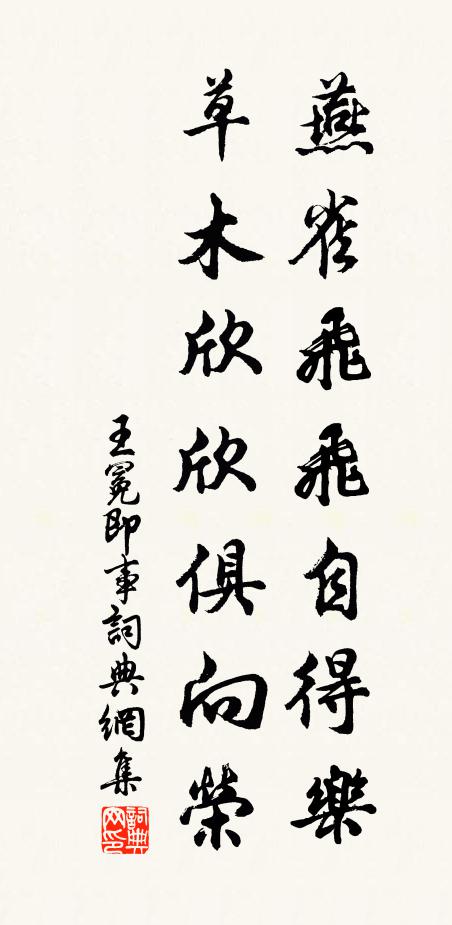 燕雀飛飛自得樂
草木欣欣俱向榮
王冕即事詞典網集
詞典網印